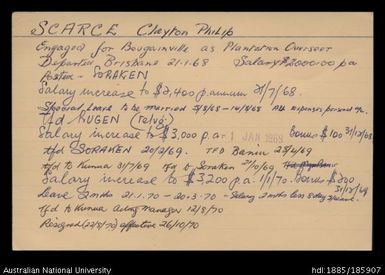 SCARCE Cleyton Philip
Engaged for Bougainville as Plantation Overseer
Departed Brisbane 21-1-68 Salary $2000.00 pa
Posted - SORAKEN
Salary increase to $2,400 p.annum 21/7/68.
Special Leave to be married 5/8/68 - 14/8/68 All expenses personal a/c.
Tfd KUGEN (Relvg.)
Salary increase to $3,000 p.a. 1 JAN 1969 Bonus $100 31/12/68
tfd SORAKEN 20/2/69. TFD Baniu 25/4/69
tfd to Kunua 31/7/69 tfd to Soraken 2/10/69
Salary increase to $3,200 p.a. 1/1/70. Bonus $200 31/12/69
Leave 2mths 21.1.70 - 20.3.70 - Salary 2mths less 8 days
tfd to Kunua Acting Manager 12/8/70
Resigned (22/8/70) effective 26/10/70
Australian National University
hdl:1885/185907